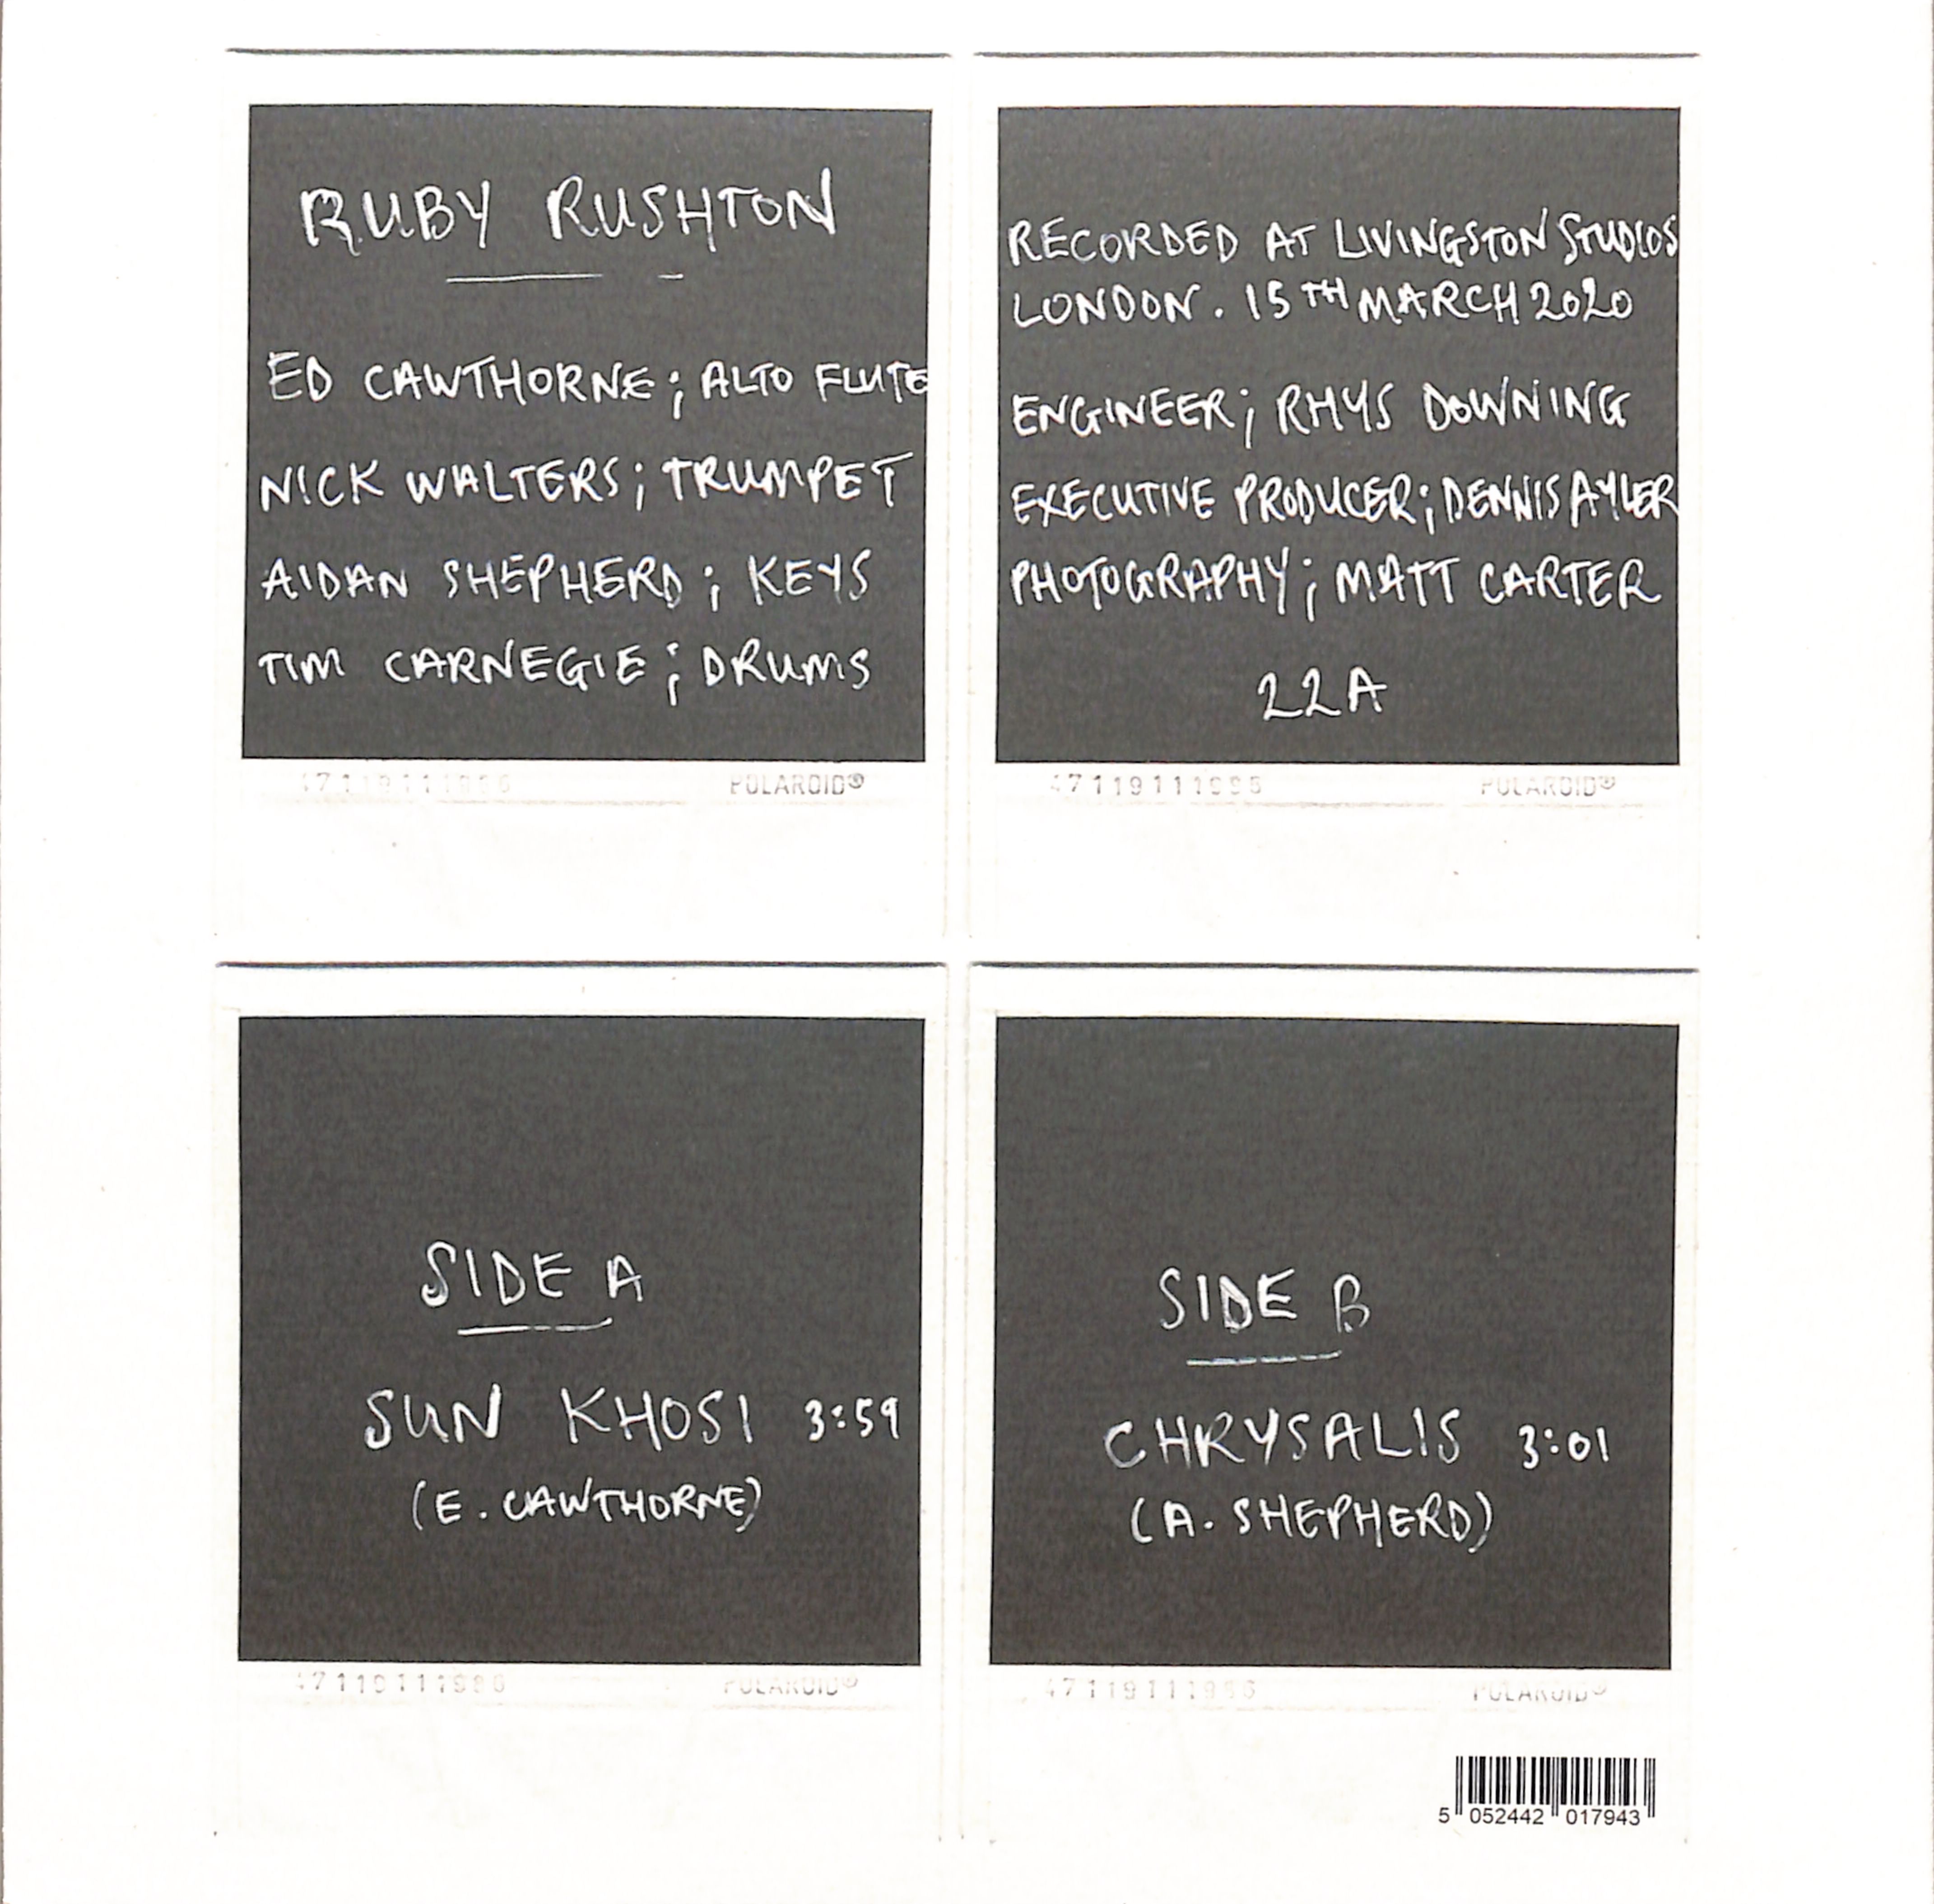 RUBY RUSHTON
ED CAWTHORNE; ALTO FLUTE
NICK WALTERS; TRUMPET
AIDAN SHEPHERD; KEYS
TIM CARNEGIE; DRUMS
POLAROID®
RECORDED AT LIVINGSTON STUDIOS
LONDON. 15TH MARCH 2020
ENGINEER; RHYS DOWNING
EXECUTIVE PRODUCER; DENNIS AYLER
PHOTOGRAPHY; MATT CARTER
22A
POLAROID®
SIDE A
SUN KHOSI 3:59
(E. CAWTHORNE)
POLAROID®
SIDE B
CHRYSALIS 3:01
(A. SHEPHERD)
POLAROID®
5 052442 017943